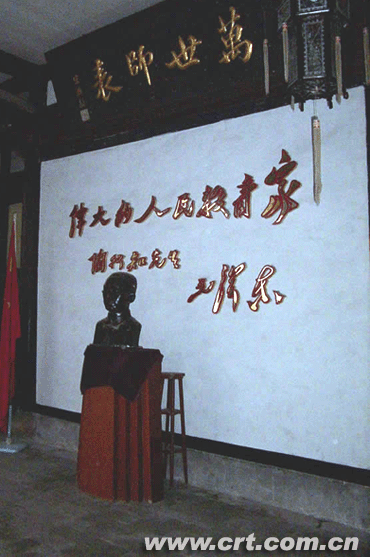 萬世師表
伟大的人民教育家
陶行知先生
毛泽东
www.crt.com.cn